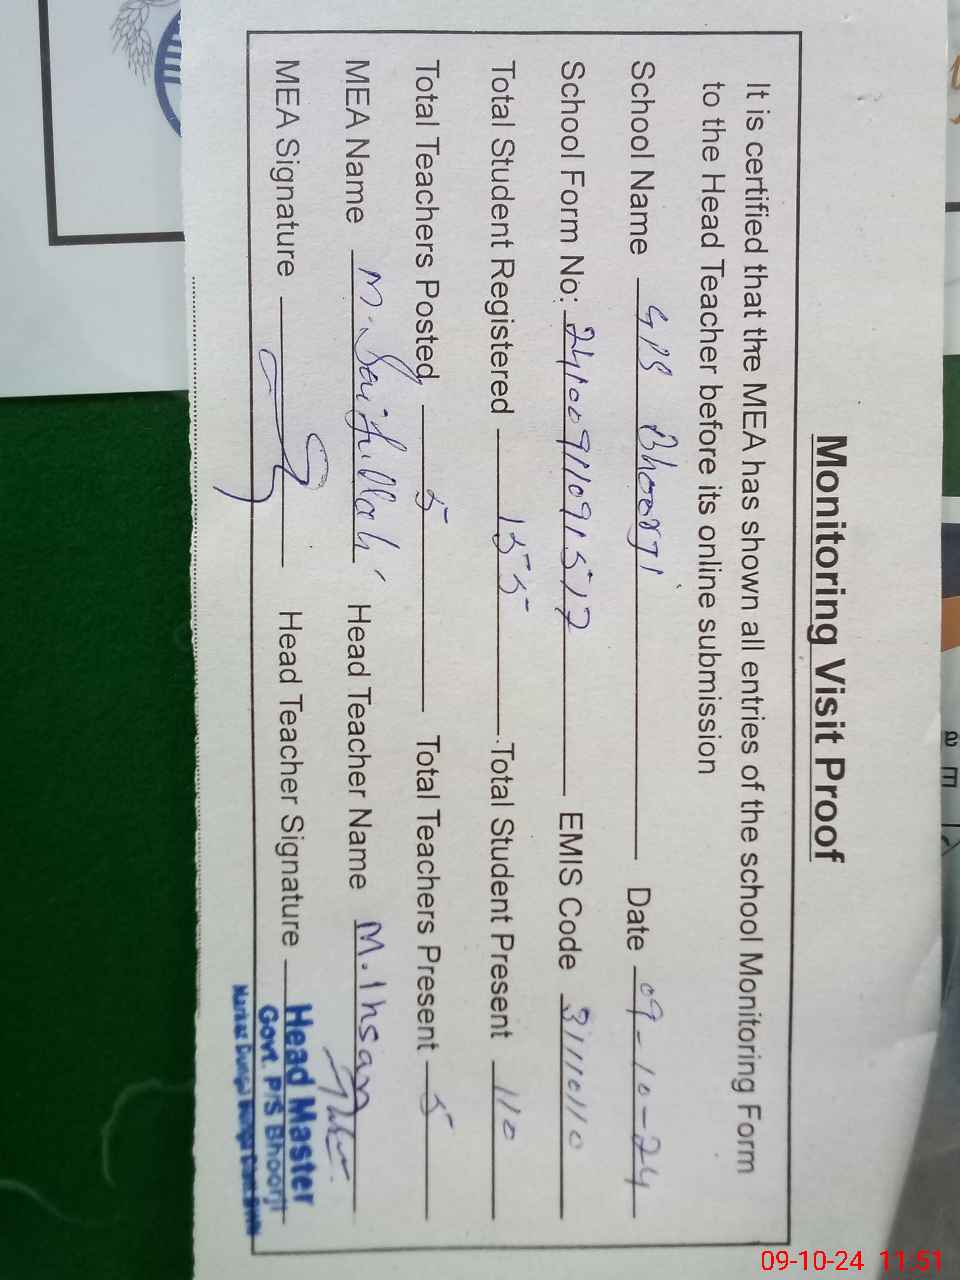 Monitoring Visit Proof
It is certified that the MEA has shown all entries of the school Monitoring Form
to the Head Teacher before its online submission
School Name GPS Bhoorji Date 09-10-24
School Form No: 24100911091517 EMIS Code 31110110
Total Student Registered 155 Total Student Present 110
Total Teachers Posted 5 Total Teachers Present 5
MEA Name M. Saifullah Head Teacher Name M. Ihsan
MEA Signature Head Teacher Signature
Head Master
Govt. P/S Bhoorji
09-10-24 11:51